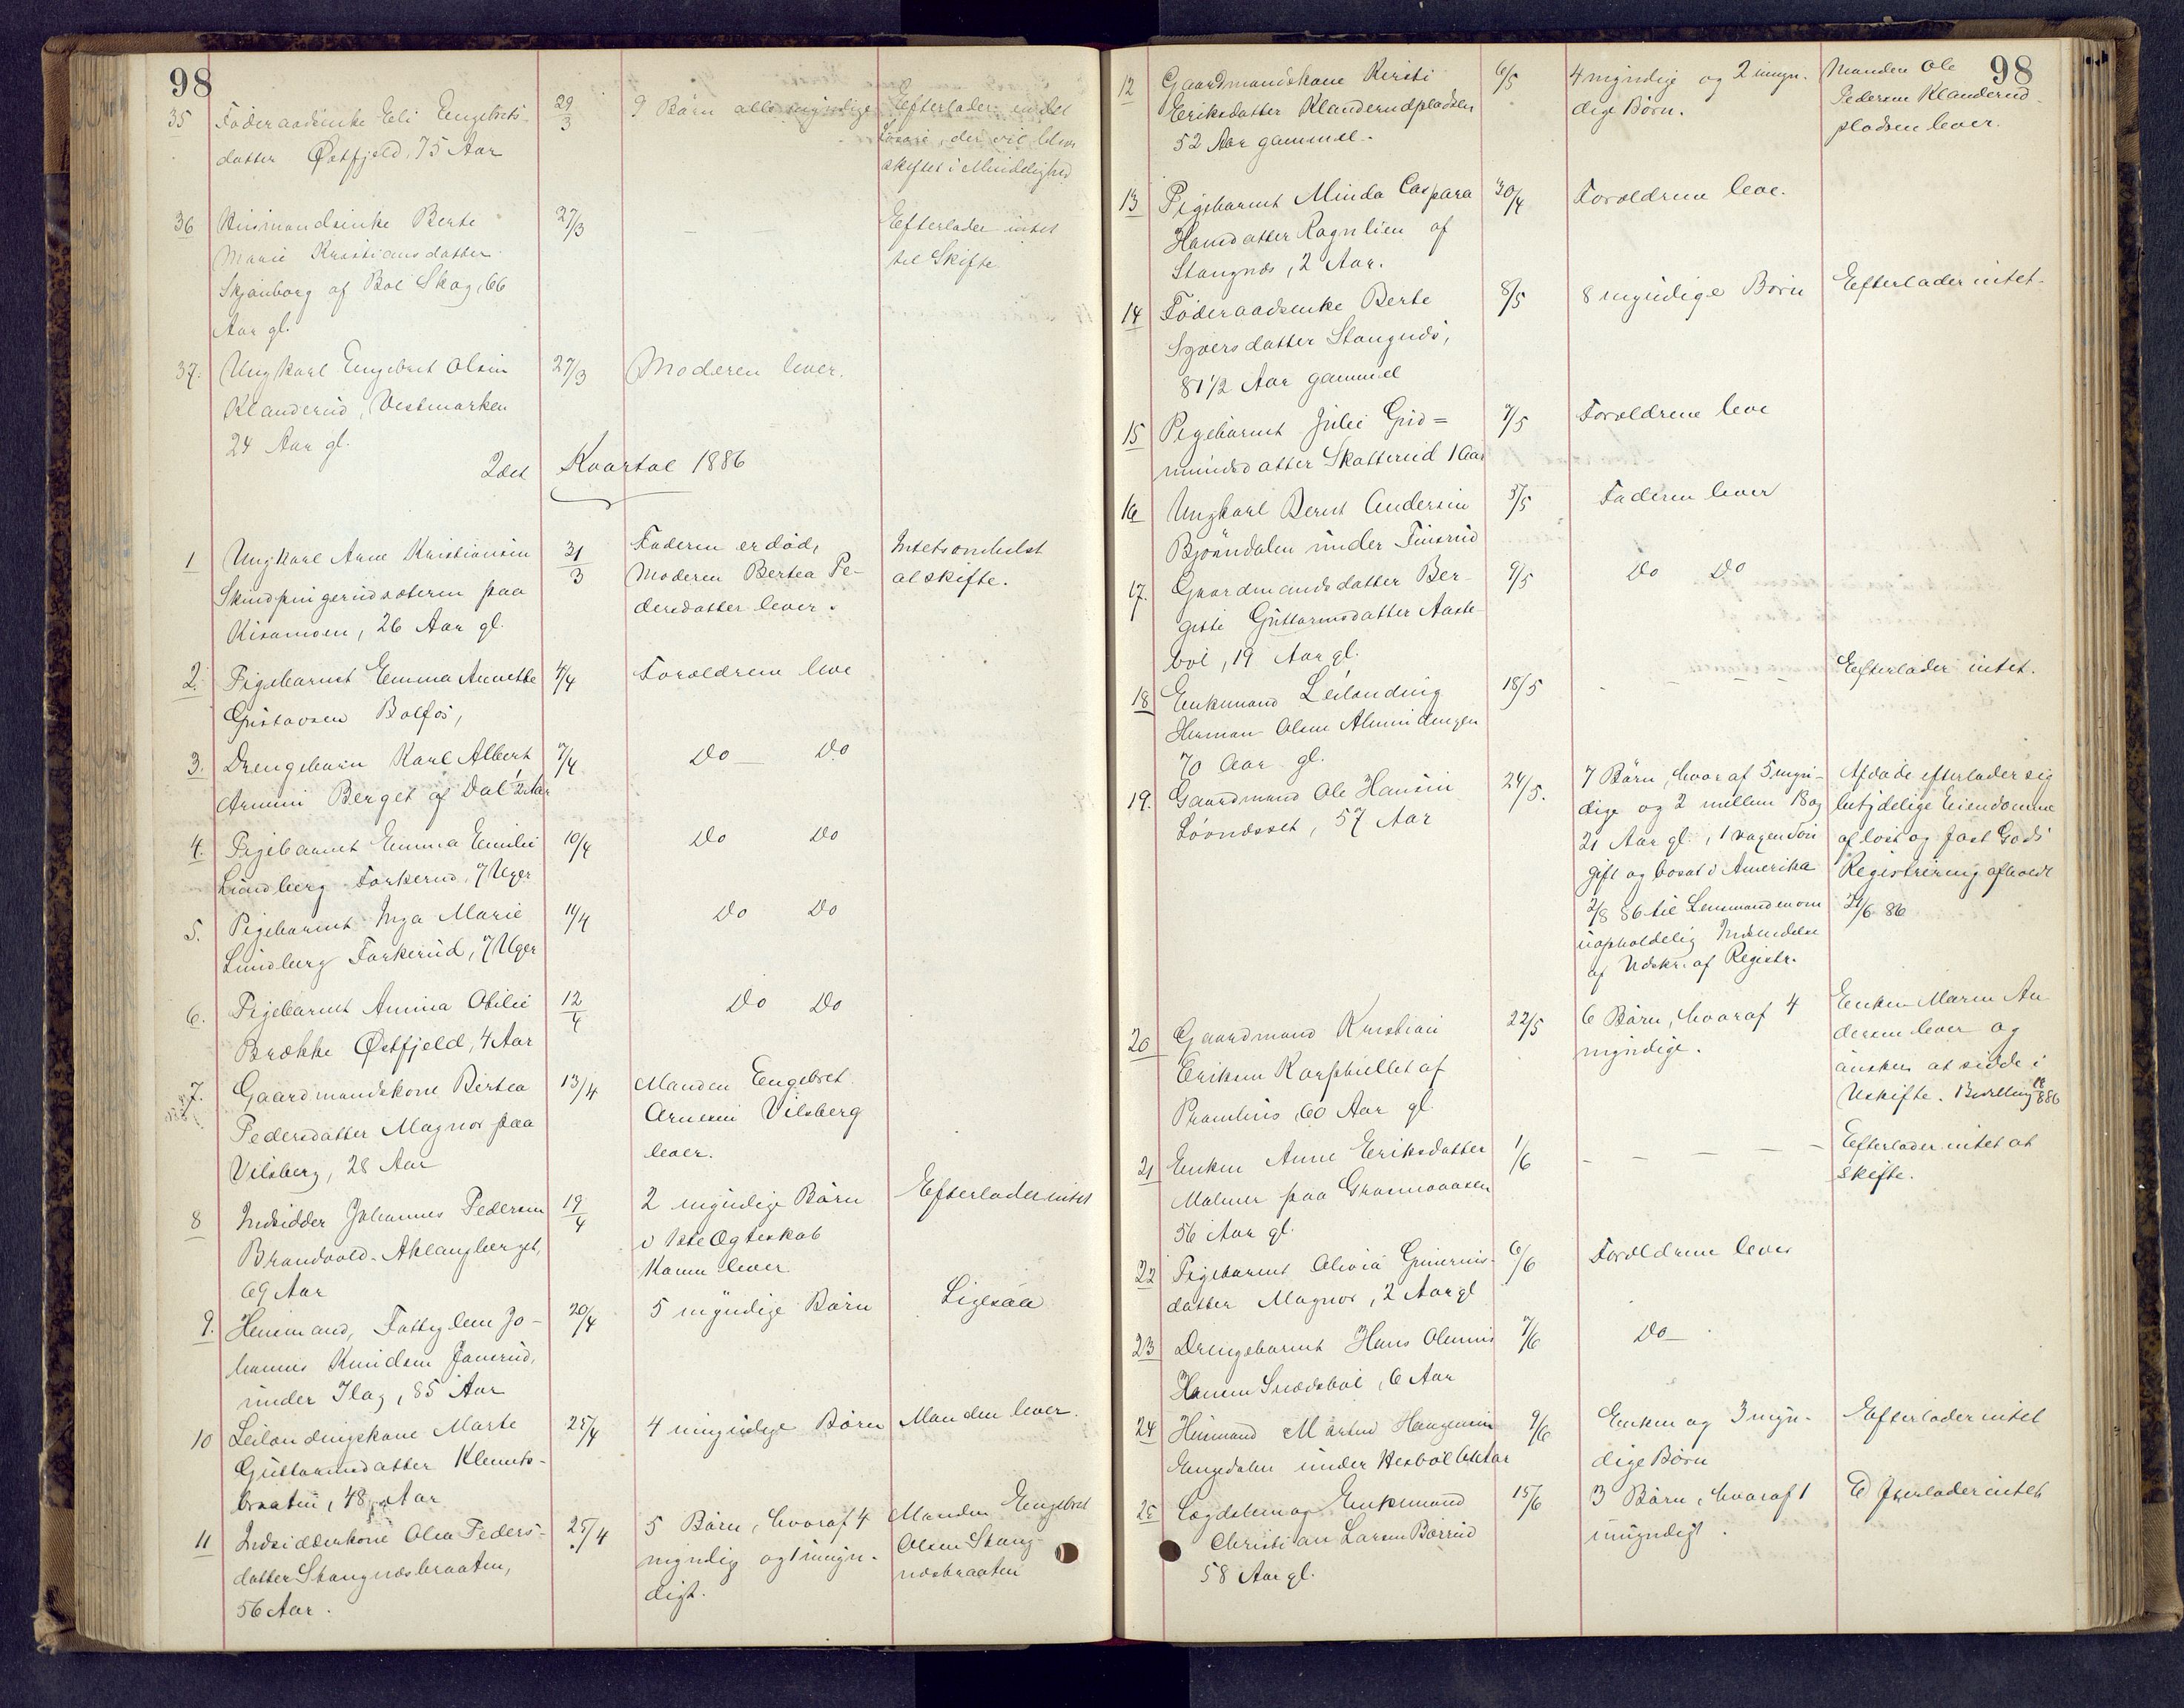 98
35 Føderaadsenke Eli Engebrets- 29/3 9 Børn alle myndige Efterlader endel
datter Østfjeld, 75 Aar Løsøre, der vil blive
skiftet i Mindelighed
36 Husmandsenke Berte 27/3 — — Efterlader intet
Marie Kristiansdatter til Skifte
Skjønborg af Bøl Skog, 66
Aar gl.
37. Ungkarl Engebret Olsen 27/3 Moderen lever.
Klanderud, Vestmarken
24 Aar gl.
2det Kvartal 1886
1 Ungkarl Arne Kristiansen 31/3 Faderen er død, Intetsomhelst
Skindpungerudsæteren paa Moderen Bertea Pe- at skifte.
Kisamoen, 26 Aar gl. dersdatter lever.
2. Pigebarnet Emma Annette 4/4 Forældrene leve
Gustavsen Bolfos,
3. Drengebarn Karl Albert 7/4 Do — Do
Arnesen Berget af Dal 1/2 Aar
4. Pigebarnet Emma Emilie 10/4 Do Do
Lundberg Forkerud, 7 Uger
5. Pigebarnet Inga Marie 11/4 Do Do
Lundberg Forkerud, 7 Uger
6. Pigebarnet Annna Otilie 12/4 Do Do
Brække Østfjeld, 4 Aar
7. Gaardmandskone Bertea 13/4 Manden Engebret
Pedersdatter Magnor paa Arnesen Vilsberg
Vilsberg, 28 Aar lever.
8 Indsidder Johannes Pedersen 19/4 2 myndige Børn Efterlader intet
Brandvold-Aklangberget, i 1ste Ægteskab
69 Aar Konen lever
9. Husmand, Fattiglem Jo- 20/4 5 myndige Børn Ligesaa
hannes Knudsen Janserud,
under Ilag, 85 Aar
10 Leilændingskone Marte 25/4 4 myndige Børn Manden lever.
Guttormsdatter Klemets-
braaten, 48 Aar
11 Indsidderkone Olea Peders- 25/4 5 Børn, hvoraf 4 Manden Engebret
datter Stangnæsbraaten, myndig og 1 umyn- Olsen Stang-
56 Aar. digt. næsbraaten
98
12 Gaardmandskone Kersti 6/5 4 myndige og 2 umyn- Manden Ole
Eriksdatter Klanderudpladsen dige Børn. Pedersen Klanderud-
52 Aar gammel. pladsen lever.
13 Pigebarnet Minda Caspara 30/4 Forældrene leve.
Hansdatter Ragnlien af
Stangnæs, 2 Aar.
14 Føderaadsenke Berte 8/5 8 myndige Børn Efterlader intet.
Syversdatter Stangnæs,
81 1/2 Aar gammel
15 Pigebarnet Julie Gud= 7/5 Forældrene leve
mundsdatter Skatterud 1 Aar
16 Ungkarl Bernt Andersen 5/5 Faderen lever
Bjørndalen under Finsrud
17. Gaardmandsdatter Ber- 9/5 Do Do
gitte Guttormsdatter Aaste
bøl, 19 Aar gl.
18 Enkemand Leilænding 18/5 — — — Efterlader intet.
Herman Olsen Almindingen
70 Aar gl.
19. Gaardmand Ole Hansen 24/5. 7 Børn, hvoraf 5 myn- Afdøde efterlader sig
Løvnæsset, 57 Aar dige og 2 mellem 18 og betydelige Eiendomme
21 Aar gl., 1 af løst og fast Gods
gift og bosat i Amerika Registrering afholdt
2/8 86 til Lensmanden om 21/6 86
uopholdelig Indsendelse
af Udskr. af Registr.
20 Gaardmand Kristian 22/5 6 Børn, hvoraf 4 Enken Maren An
Eriksen Karphullet af myndige. dersen lever og
Pramhus, 60 Aar gl. ønsker at sidde i
Uskifte. Bevilling
21 Enken Anne Eriksdatter 1/6 — — — — Efterlader intet at
Malmer paa Grasmoaasen skifte.
56 Aar gl.
22 Pigebarnet Olivia Gunerius- 6/6 Forældrene lever
datter Magnor, 2 Aar gl
23 Drengebarnet Hans Olemus 7/6 Do
Hansen Snedsbøl, 6 Aar
24 Husmand Martin Haagensen 9/6 Enken og 3 myn- Efterlader intet
Engedalen under Hesbøl dige Børn
25 Lægdslem og Enkemand 15/6 3 Børn, hvoraf 1 Efterlader intet
Christian Larsen Børrud umyndigt.
58 Aar gl.